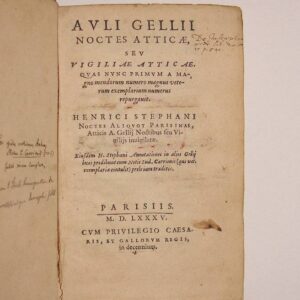 AVLI GELLII
NOCTES ATTICÆ,
SEV
VIGILIAE ATTICAE.
QVAS NVNC PRIMVM A MA-
gno mendorum numero magnus vete-
rum exemplariorum numerus
repurgauit.
HENRICI STEPHANI
NOCTES ALIQVOT PARISINAE,
Atticis A. Gellij Noctibus seu Vi-
gilijs inuigilatæ.
Eiusdem H. Stephani Annotationes in alios Gellij
locos prodibunt cum Notis Lud. Carrionis (qui vet.
exemplaria contulit) prelo iam traditis.
PARISIIS.
M. D. LXXXV.
CVM PRIVILEGIO CAESA-
RIS, ET GALLORVM REGIS,
in decennium.